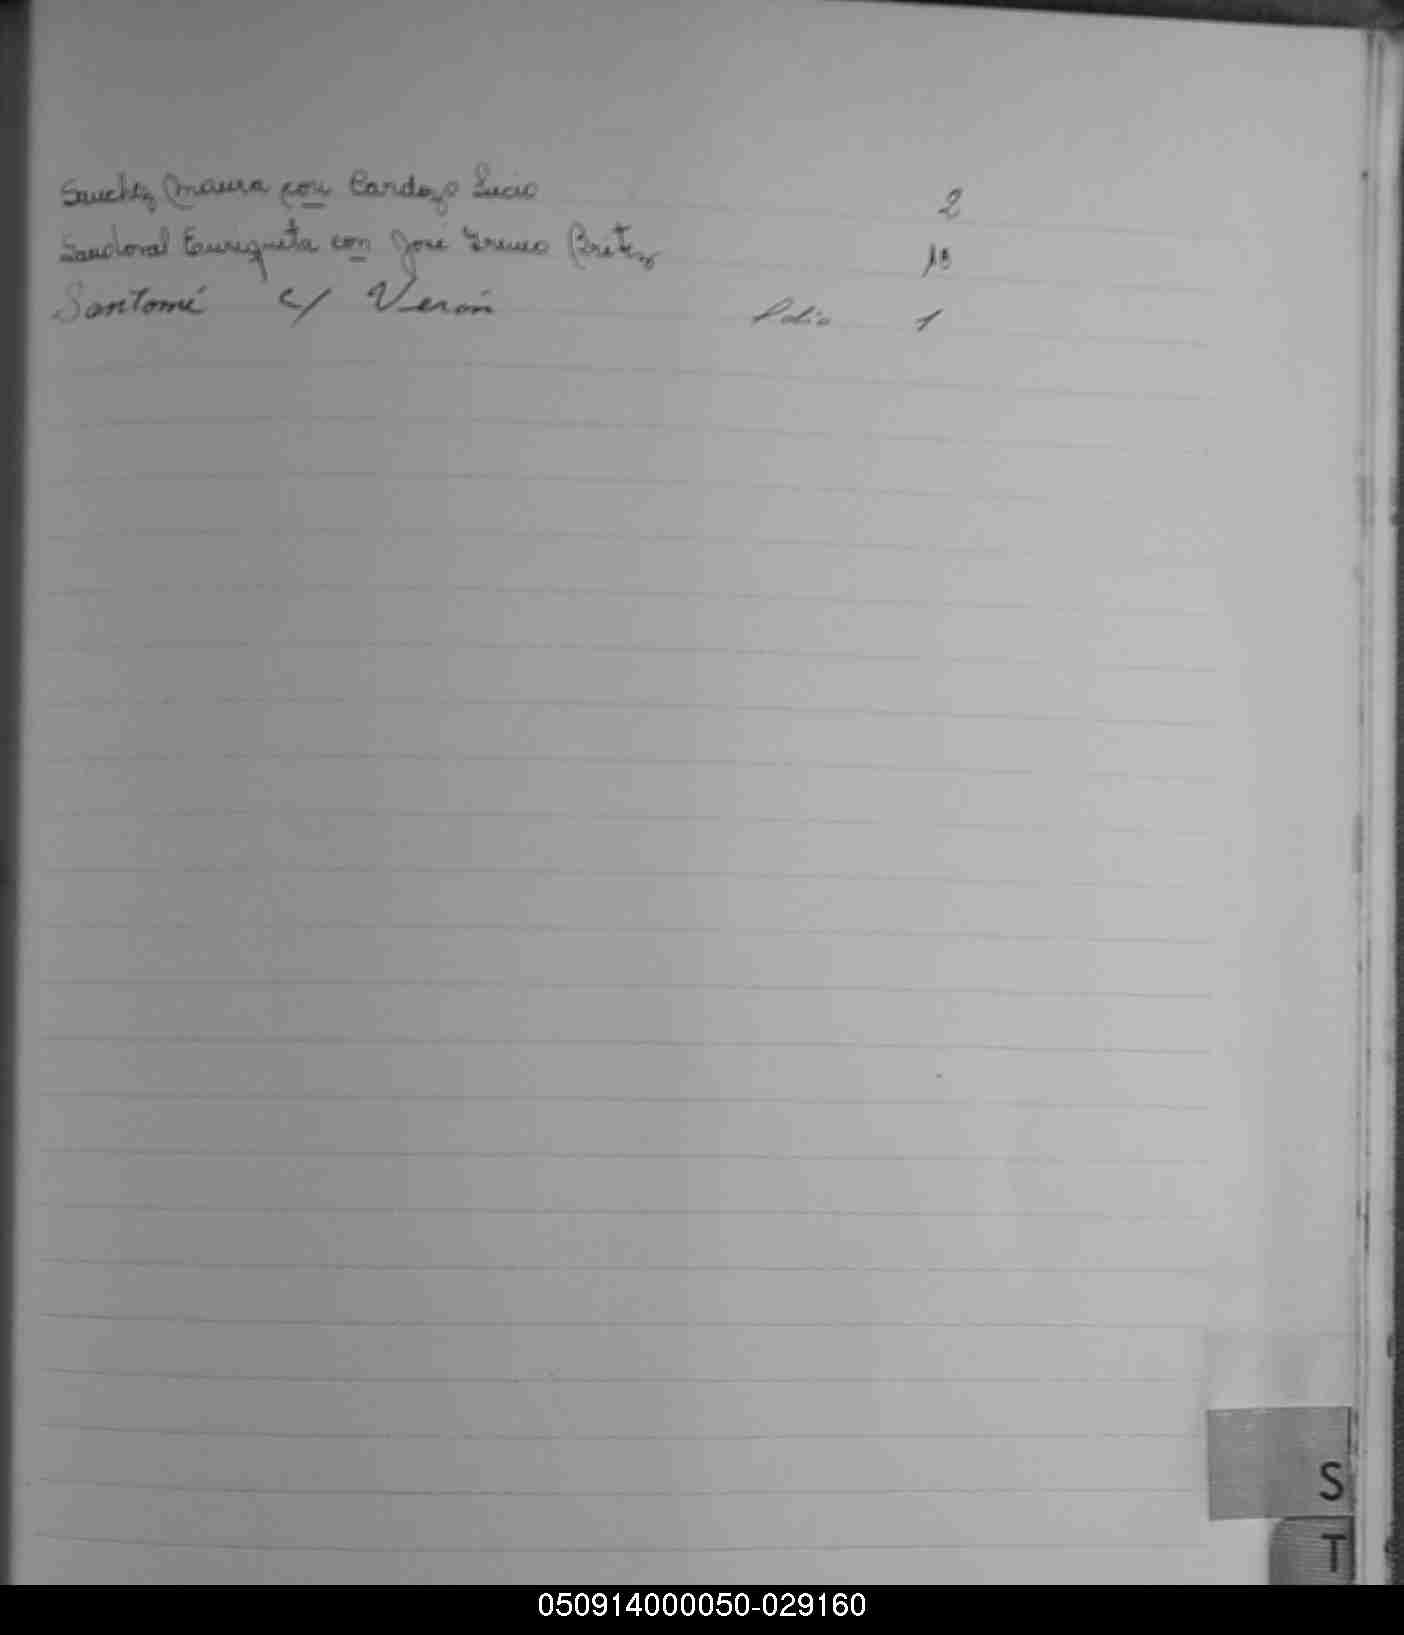 Sanchez Maura con Cardozo Lucio 2
Sandoval Enriqueta con José Ireneo Brítez
Santomé c/ Verón Folio 1
S
T
050914000050-029160